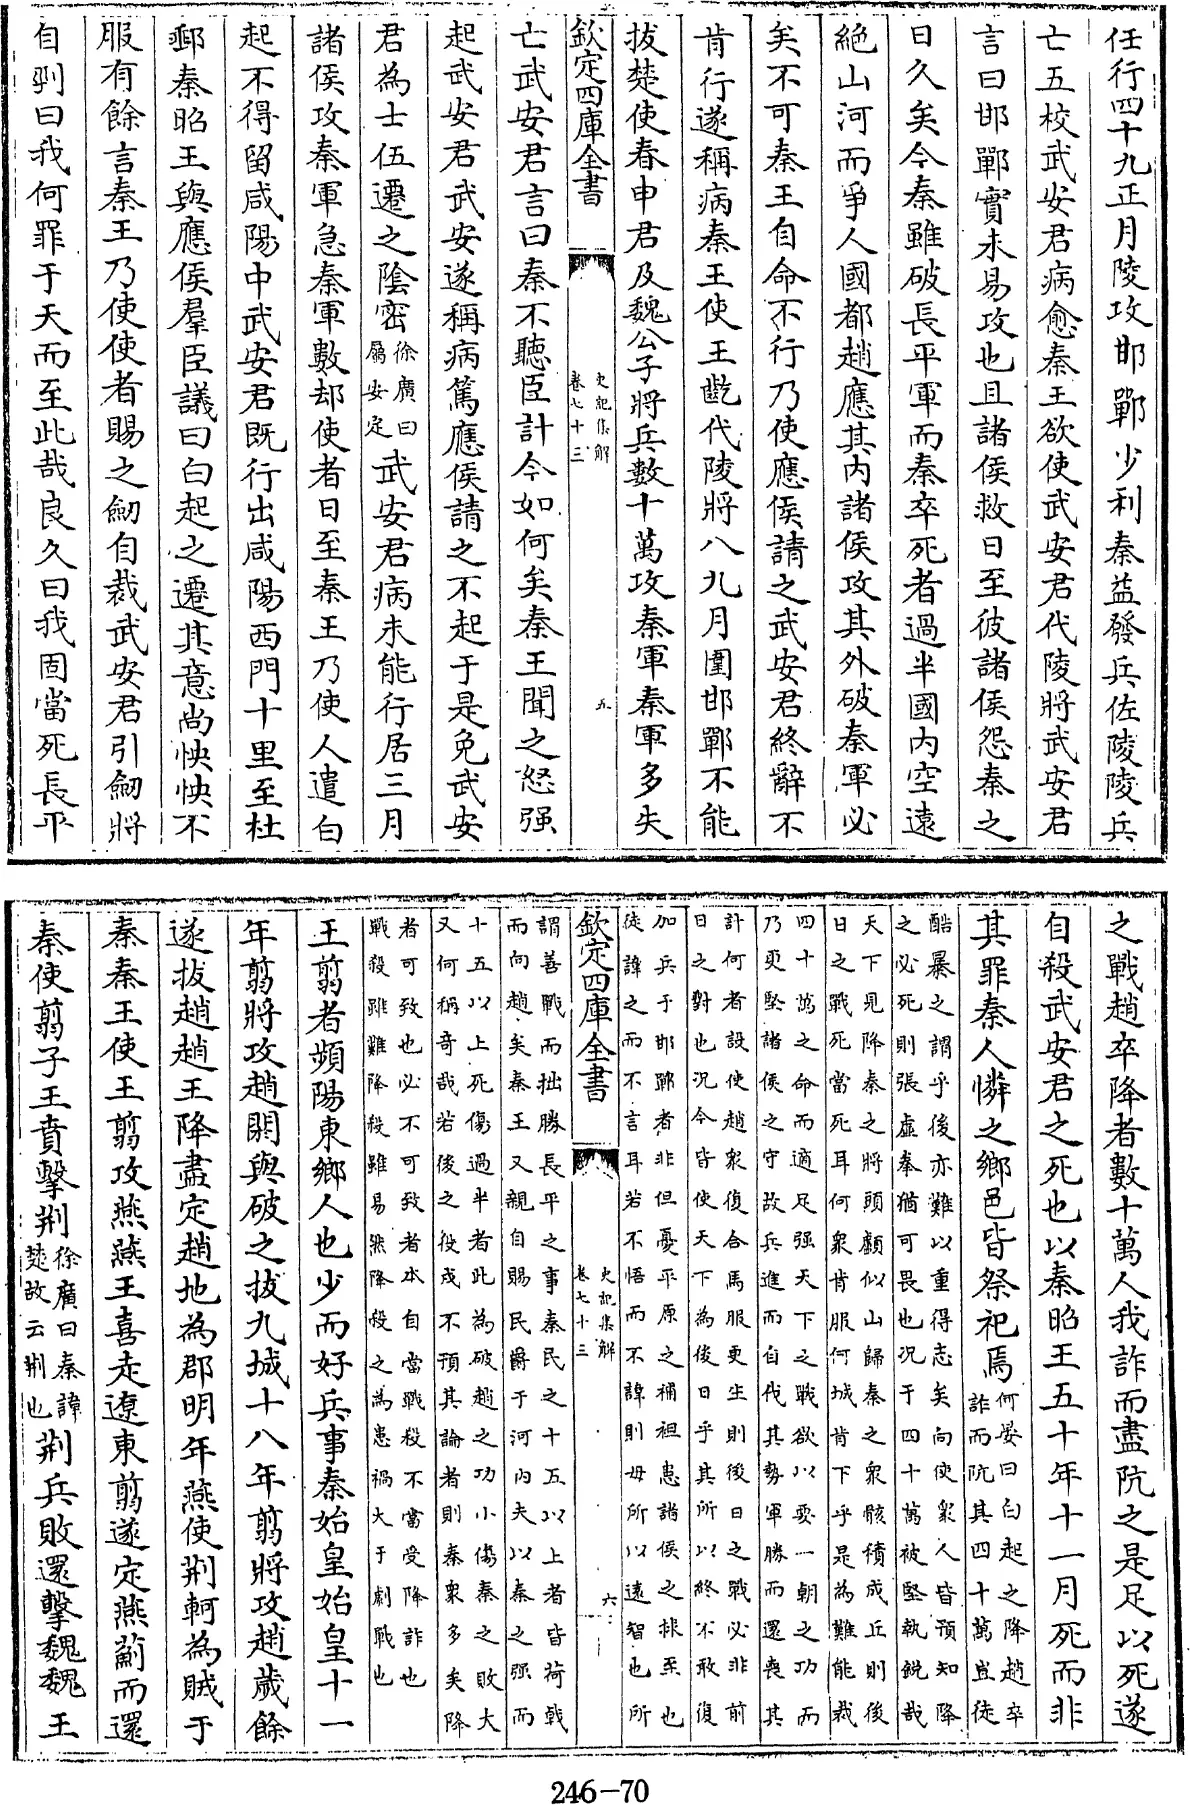 任行四十九正月陵攻邯鄲少利秦益發兵佐陵陵兵
亡五校武安君病愈秦王欲使武安君代陵將武安君
言曰邯鄲實未易攻也且諸侯救日至彼諸侯怨秦之
日久矣今秦雖破長平軍而秦卒死者過半國内空遠
絶山河而爭人國都趙應其内諸侯攻其外破秦軍必
矣不可秦王自命不行乃使應侯請之武安君終辭不
肯行遂稱病秦王使王齕代陵將八九月圍邯鄲不能
拔楚使春申君及魏公子將兵數十萬攻秦軍秦軍多失
欽定四庫全書
史記集解
卷七十三
五
亡武安君言曰秦不聽臣計今如何矣秦王聞之怒强
起武安君武安遂稱病篤應侯請之不起于是免武安
君為士伍遷之陰密徐廣曰屬安定武安君病未能行居三月
諸侯攻秦軍急秦軍數却使者日至秦王乃使人遣白
起不得留咸陽中武安君既行出咸陽西門十里至杜
郵秦昭王與應侯羣臣議曰白起之遷其意尚怏怏不
服有餘言秦王乃使使者賜之劒自裁武安君引劒將
自刎曰我何罪于天而至此哉良久曰我固當死長平
之戰趙卒降者數十萬人我詐而盡阬之是足以死遂
自殺武安君之死也以秦昭王五十年十一月死而非
其罪秦人憐之鄉邑皆祭祀焉何晏曰白起之降趙卒
詐而阬其四十萬豈徒
酷暴之謂乎後亦難以重得志矣向使衆人皆預知降
之必死則張虚拳猶可畏也況于四十萬被堅執銳哉
天下見降秦之將頭顱似山歸秦之衆骸積成丘則後
日之戰死當死耳何衆肯服何城肯下乎是為難能裁
四十萬之命而適足强天下之戰欲以要一朝之功而
乃更堅諸侯之守故兵進而自伐其勢軍勝而還喪其
計何者設使趙衆復合馬服更生則後日之戰必非前
日之對也況今皆使天下為後日乎其所以終不敢復
加兵于邯鄲者非但憂平原之補袒患諸侯之捄至也
徒諱之而不言耳若不悟而不諱則毋所以遠智也所
欽定四庫全書
史記集解
卷七十三
六
謂善戰而拙勝長平之事秦民之十五以上者皆荷戟
而向趙矣秦王又親自賜民爵于河内夫以秦之强而
十五以上死傷過半者此為破趙之功小傷秦之敗大
又何稱奇哉若後之役戎不預其論者則秦衆多矣降
者可致也必不可致者本自當戰殺不當受降詐也
戰殺雖難降殺雖易然降殺之為患禍大于劇戰也
王翦者頻陽東鄉人也少而好兵事秦始皇始皇十一
年翦將攻趙閼與破之拔九城十八年翦將攻趙歲餘
遂拔趙趙王降盡定趙地為郡明年燕使荆軻為賊于
秦秦王使王翦攻燕燕王喜走遼東翦遂定燕薊而還
秦使翦子王賁擊荆徐廣曰秦諱楚故云荆也荆兵敗還擊魏魏王
246-70